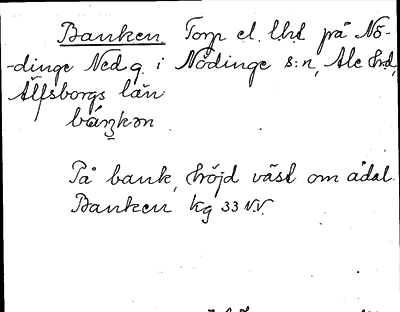 Banken. Torp el. lht på Nö-
-dinge Nedg. i Nödinge s:n, Ale hd,
Älfsborgs län
báŋkən
På bank, höjd väst om ådal.
Banken kg 33 N.V.